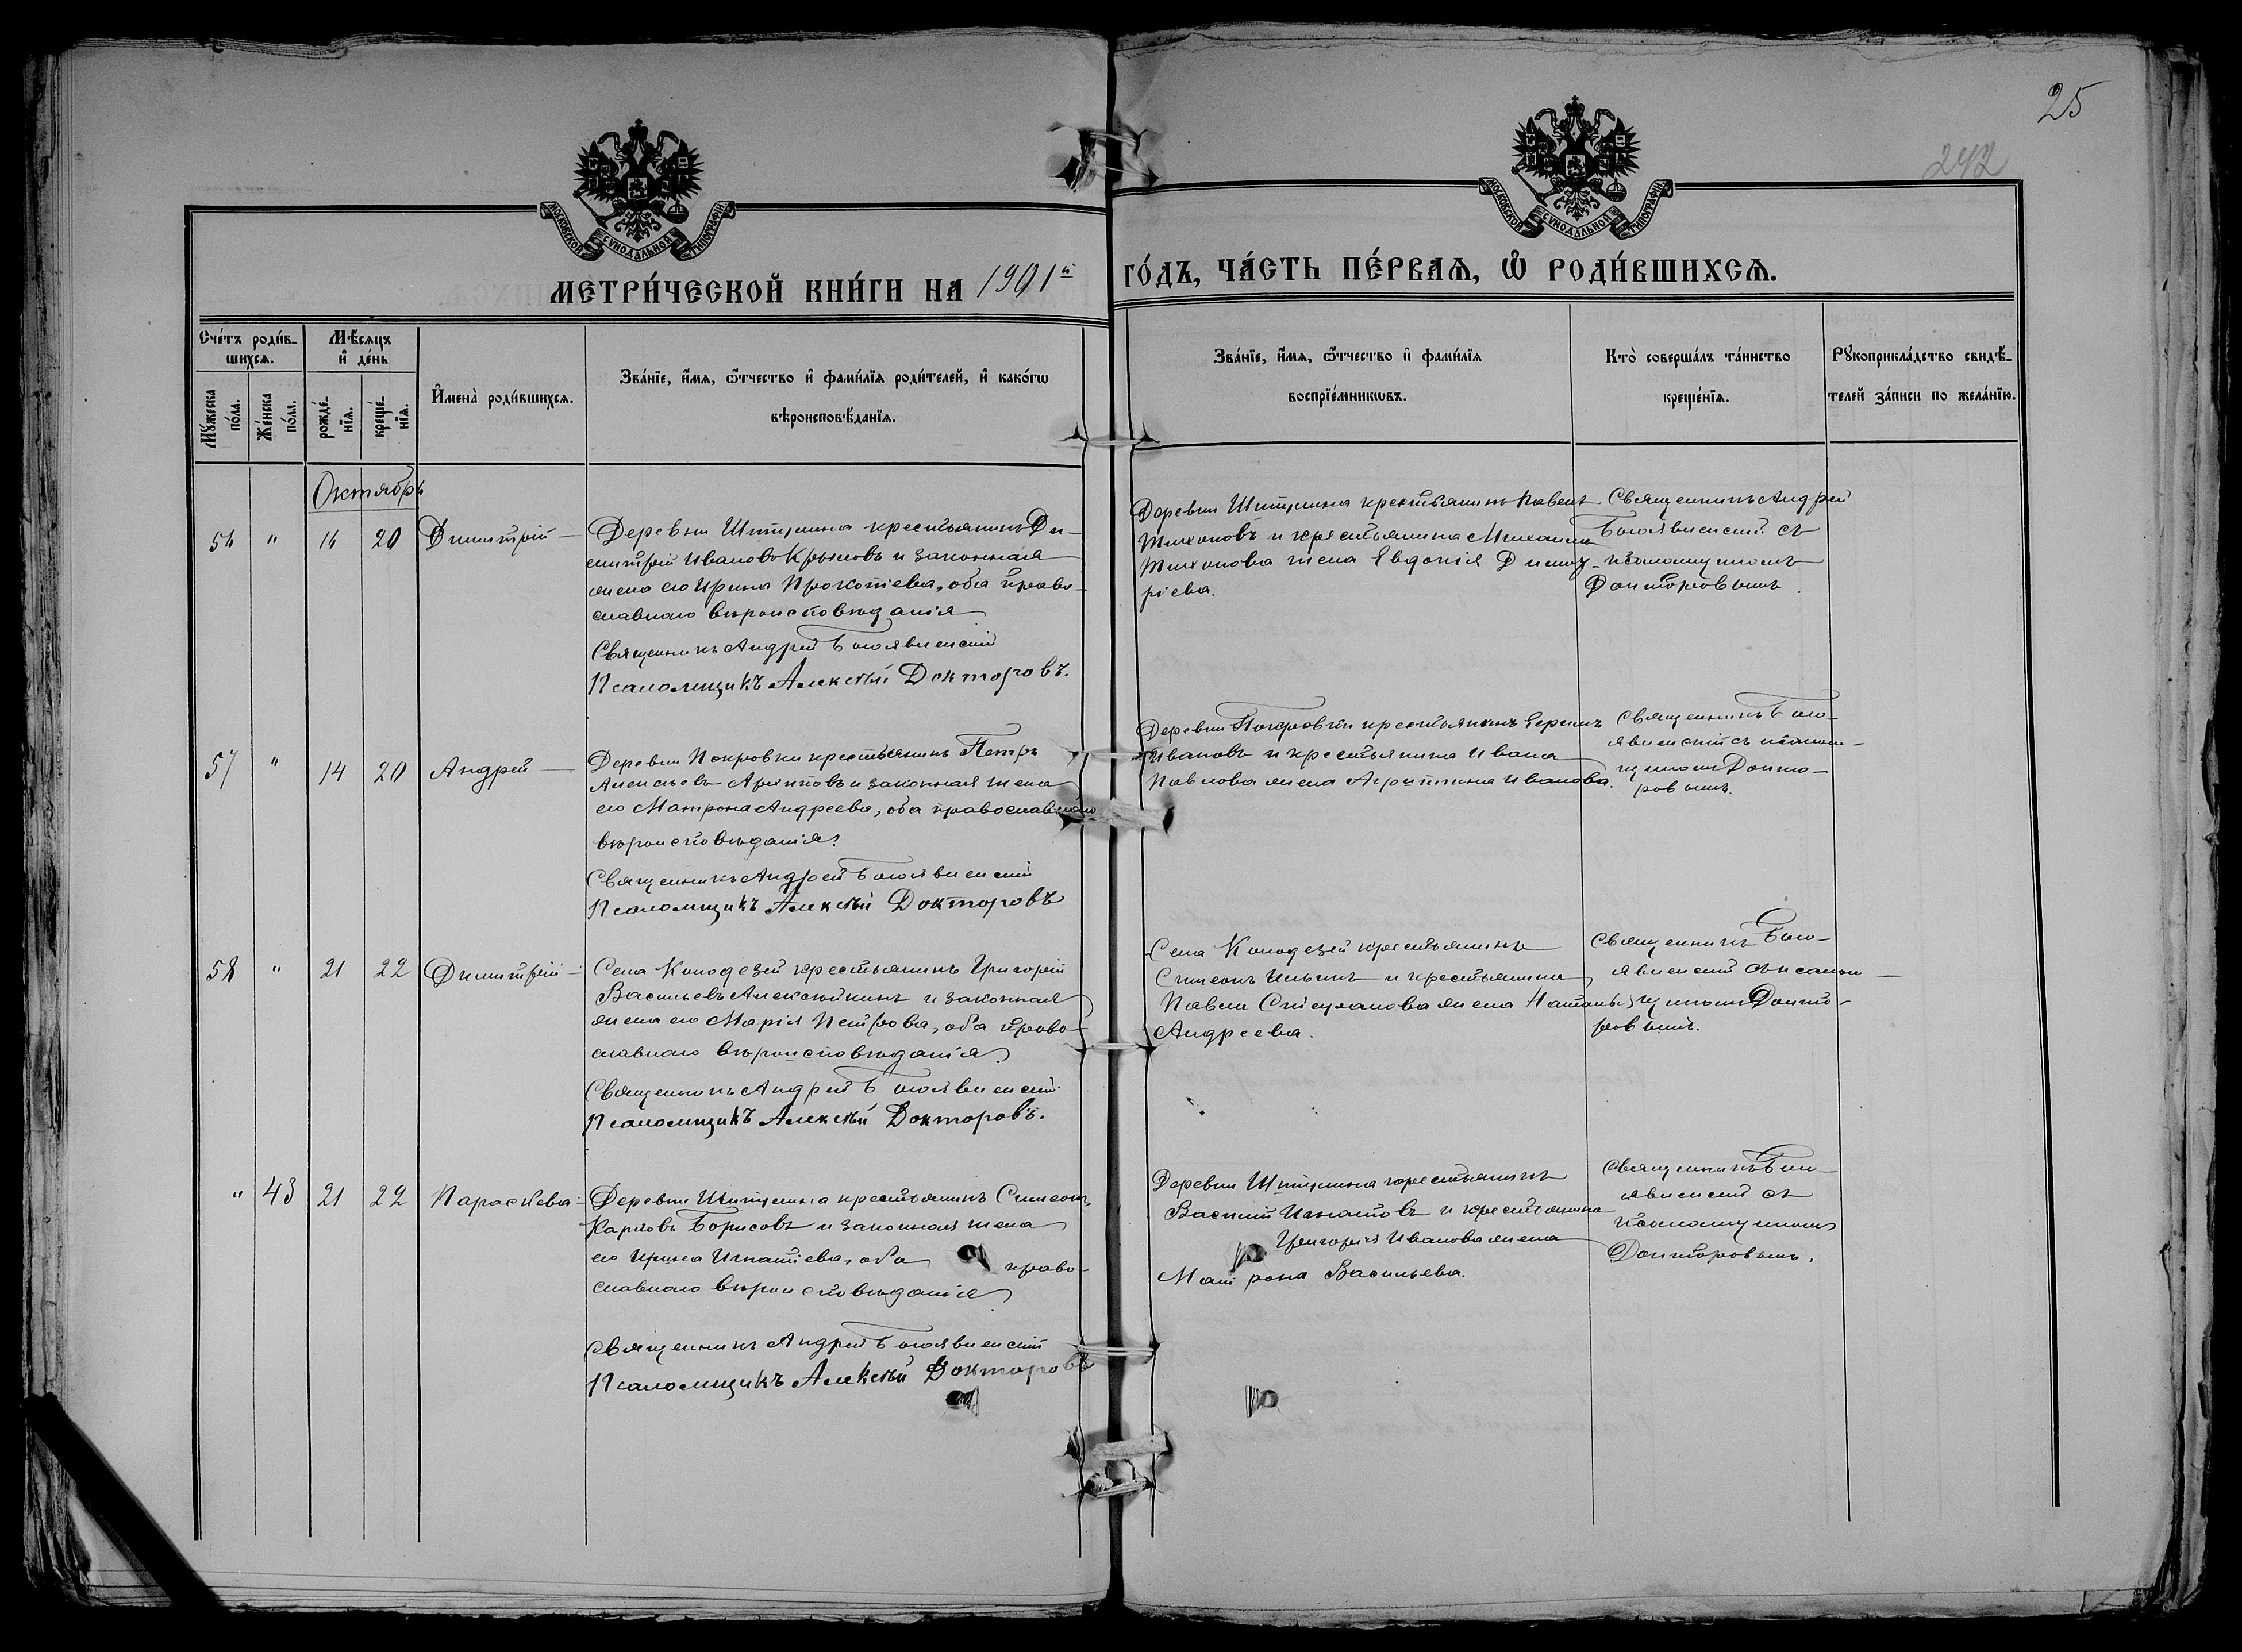 25
242
МОСКОВСКОЙ СѴНОДАЛЬНОЙ ТИПОГРАФІИ
МОСКОВСКОЙ СѴНОДАЛЬНОЙ ТИПОГРАФІИ
МЕТРИ́ЧЕСКОЙ КНИ́ГИ НА 1901й
ГО́ДЪ, ЧА́СТЬ ПЕ́РВАѦ, Ѡ҆ РОДИ́ВШИХСѦ.
Сче́тъ роди́в-
шихсѧ.
Мꙋ́жеска по́ла.
Же́нска по́ла.
Мѣ́сѧцъ
и҆ де́нь
рожде́-
нїѧ.
креще́-
нїѧ.
И҆мена̀ роди́вшихсѧ.
Зва́нїе, и҆́мѧ, ѻ҆́тчество и҆ фами́лїѧ роди́телей, и҆ како́гѡ
вѣроисповѣ́данїѧ.
Зва́нїе, и҆́мѧ, ѻ҆́тчество и҆ фами́лїѧ
воспрїе́мникѡвъ.
Кто̀ соверша́лъ та́инство
креще́нїѧ.
Рꙋкоприкла́дство свидѣ́-
телей за́писи по жела́нїю.
Октябрь
56 " 16 20 Димитрій
Деревни Шитуина крестьянинъ Ди-
митрій Ивановъ Крыловъ и законная
жена его Ирина Прокопіева, оба право-
славнаго вѣроисповѣданія
Священникъ Андрей Богоявленскій
Псаломщикъ Алексѣй Докторовъ.
Деревни Шитуина крестьянинъ Павелъ
Тихоновъ и крестьянина Михаила
Тихонова жена Евдокія Димит-
ріева.
Священникъ Андрей
Богоявленскій съ
псаломщикомъ
Докторовымъ.
57 " 14 20 Андрей
Деревни Покровки крестьянинъ Петръ
Алексѣевъ Архиповъ и законная жена
его Матрона Андреева, оба православнаго
вѣроисповѣданія.
Священникъ Андрей Богоявленскій
Псаломщикъ Алексѣй Докторовъ
Деревни Покровки крестьянинъ
Ивановъ и крестьянина Ивана
Павлова жена Агриппина Иванова.
Священникъ Бого-
явленскій съ псалом-
щикомъ Докто-
ровымъ.
58 " 21 22 Димитрій
Села Колодезей крестьянинъ Григорій
Васильевъ Алексюткинъ и законная
жена его Марія Петрова, оба право-
славнаго вѣроисповѣданія
Священникъ Андрей Богоявленскій
Псаломщикъ Алексѣй Докторовъ.
Села Колодезей крестьянинъ
Симеонъ Ильинъ и крестьянина
Павла жена Наталья
Андреева.
Священникъ Бого-
явленскій съ псалом-
щикомъ Докто-
ровымъ.
" 43 21 22 Параскева
Деревни Шитуина крестьянинъ Симеонъ
Карповъ Борисовъ и законная жена
его Ирина Игнатіева, оба право-
славнаго вѣроисповѣданія
Священникъ Андрей Богоявленскій
Псаломщикъ Алексѣй Докторовъ
Деревни Шитуина крестьянинъ
Василій Игнатовъ и крестьянина
Григорія Иванова жена
Матрона Васильева.
Священникъ Бого-
явленскій съ
псаломщикомъ
Докторовымъ.